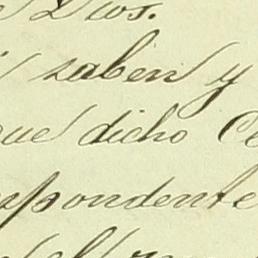 Dios.
saben y
que dicho Ce
spondente